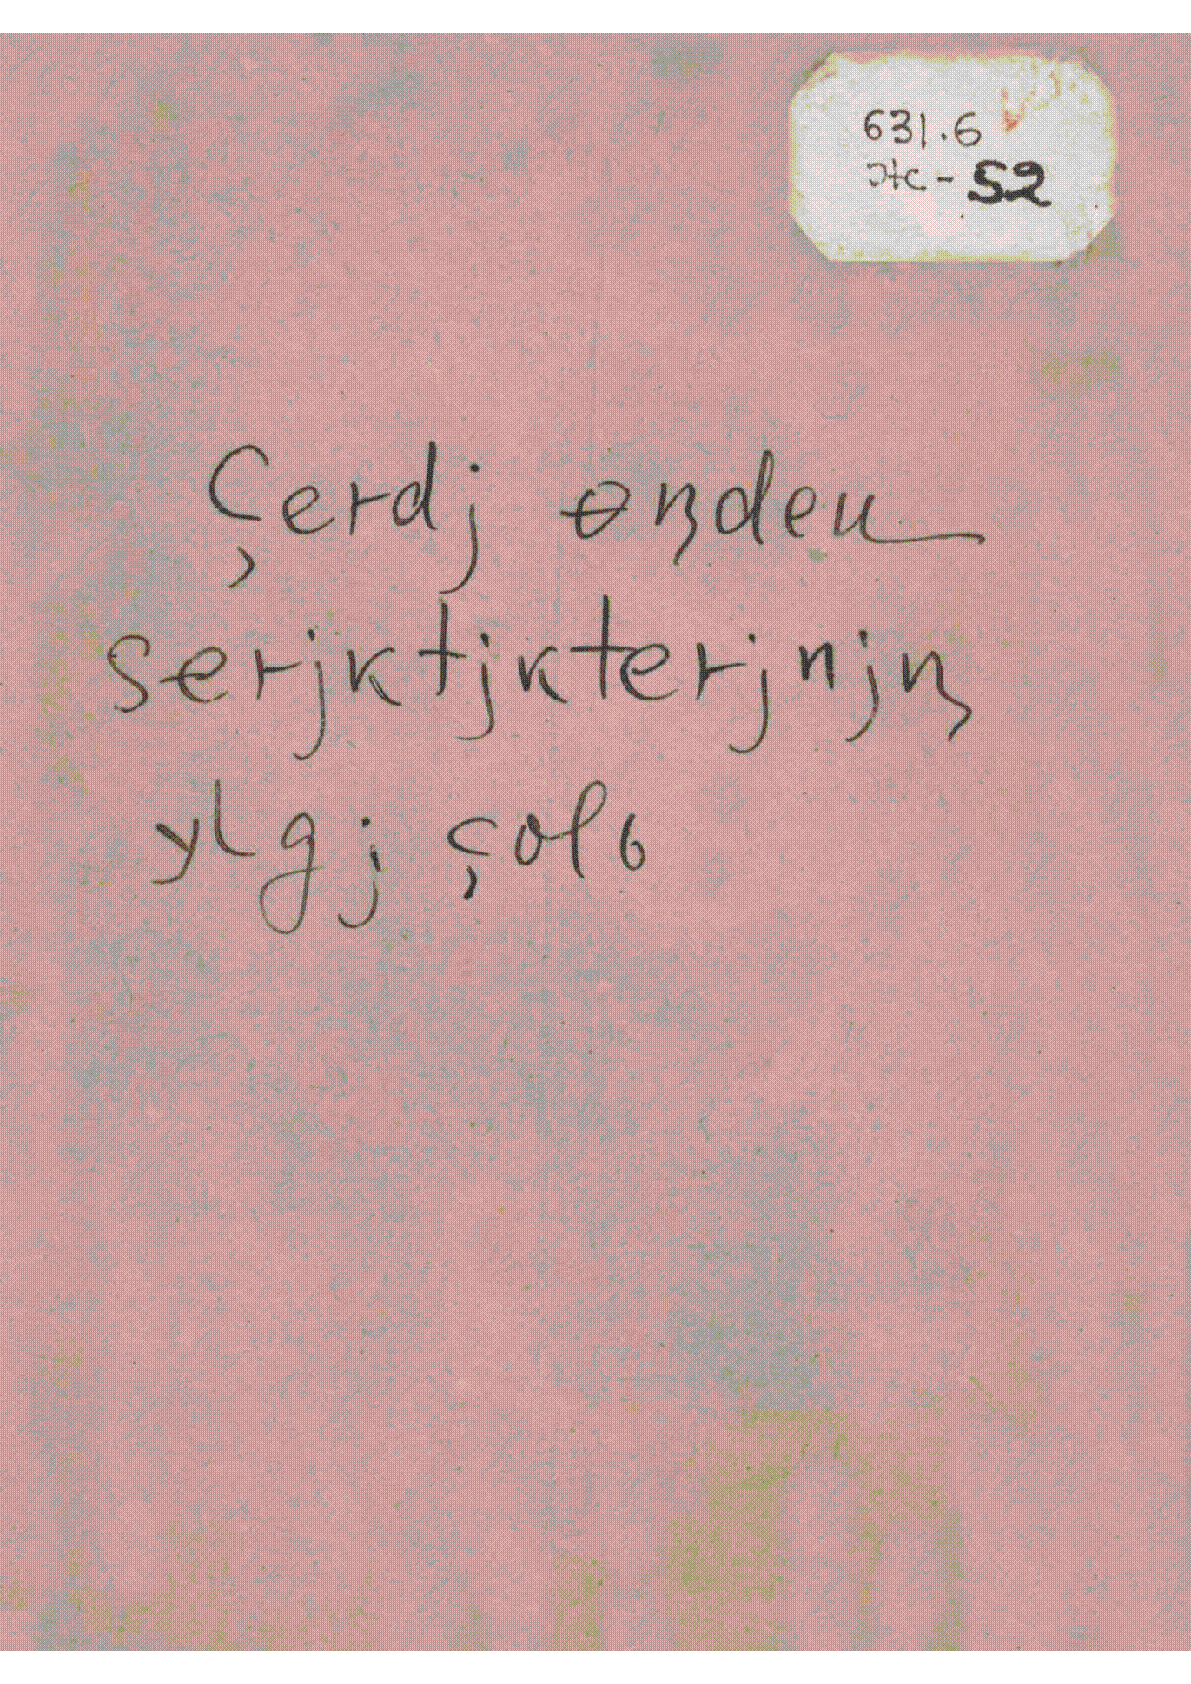 631.6
Ж-52
Çerdj ɵꞑdeu
serjktjkterjnjꞑ
ylgj çolь